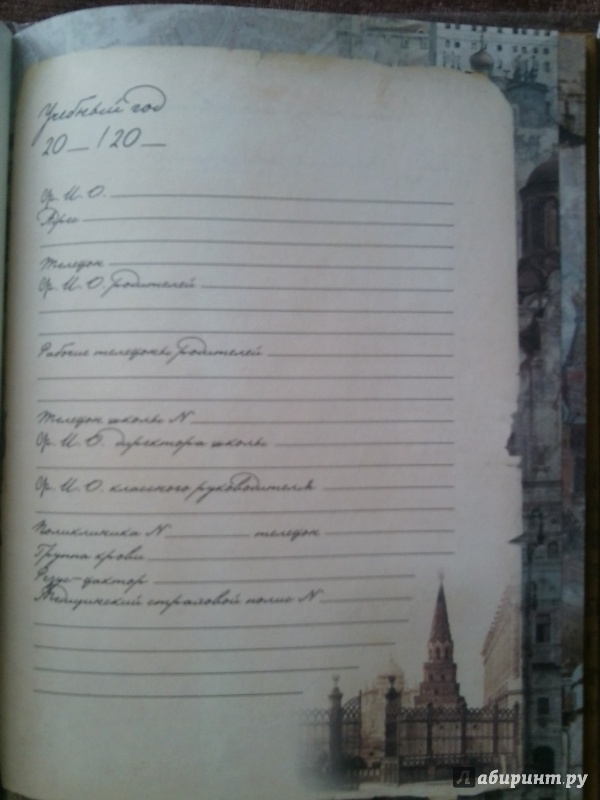 Учебный год
20__/20__
Ф. И. О.
Адрес
Телефон
Ф. И. О. родителей
Рабочие телефоны родителей
Телефон школы N
Ф. И. О. директора школы
Ф. И. О. классного руководителя
Поликлиника N телефон
Группа крови
Резус-фактор
Медицинский страховой полис N
Лабиринт.ру